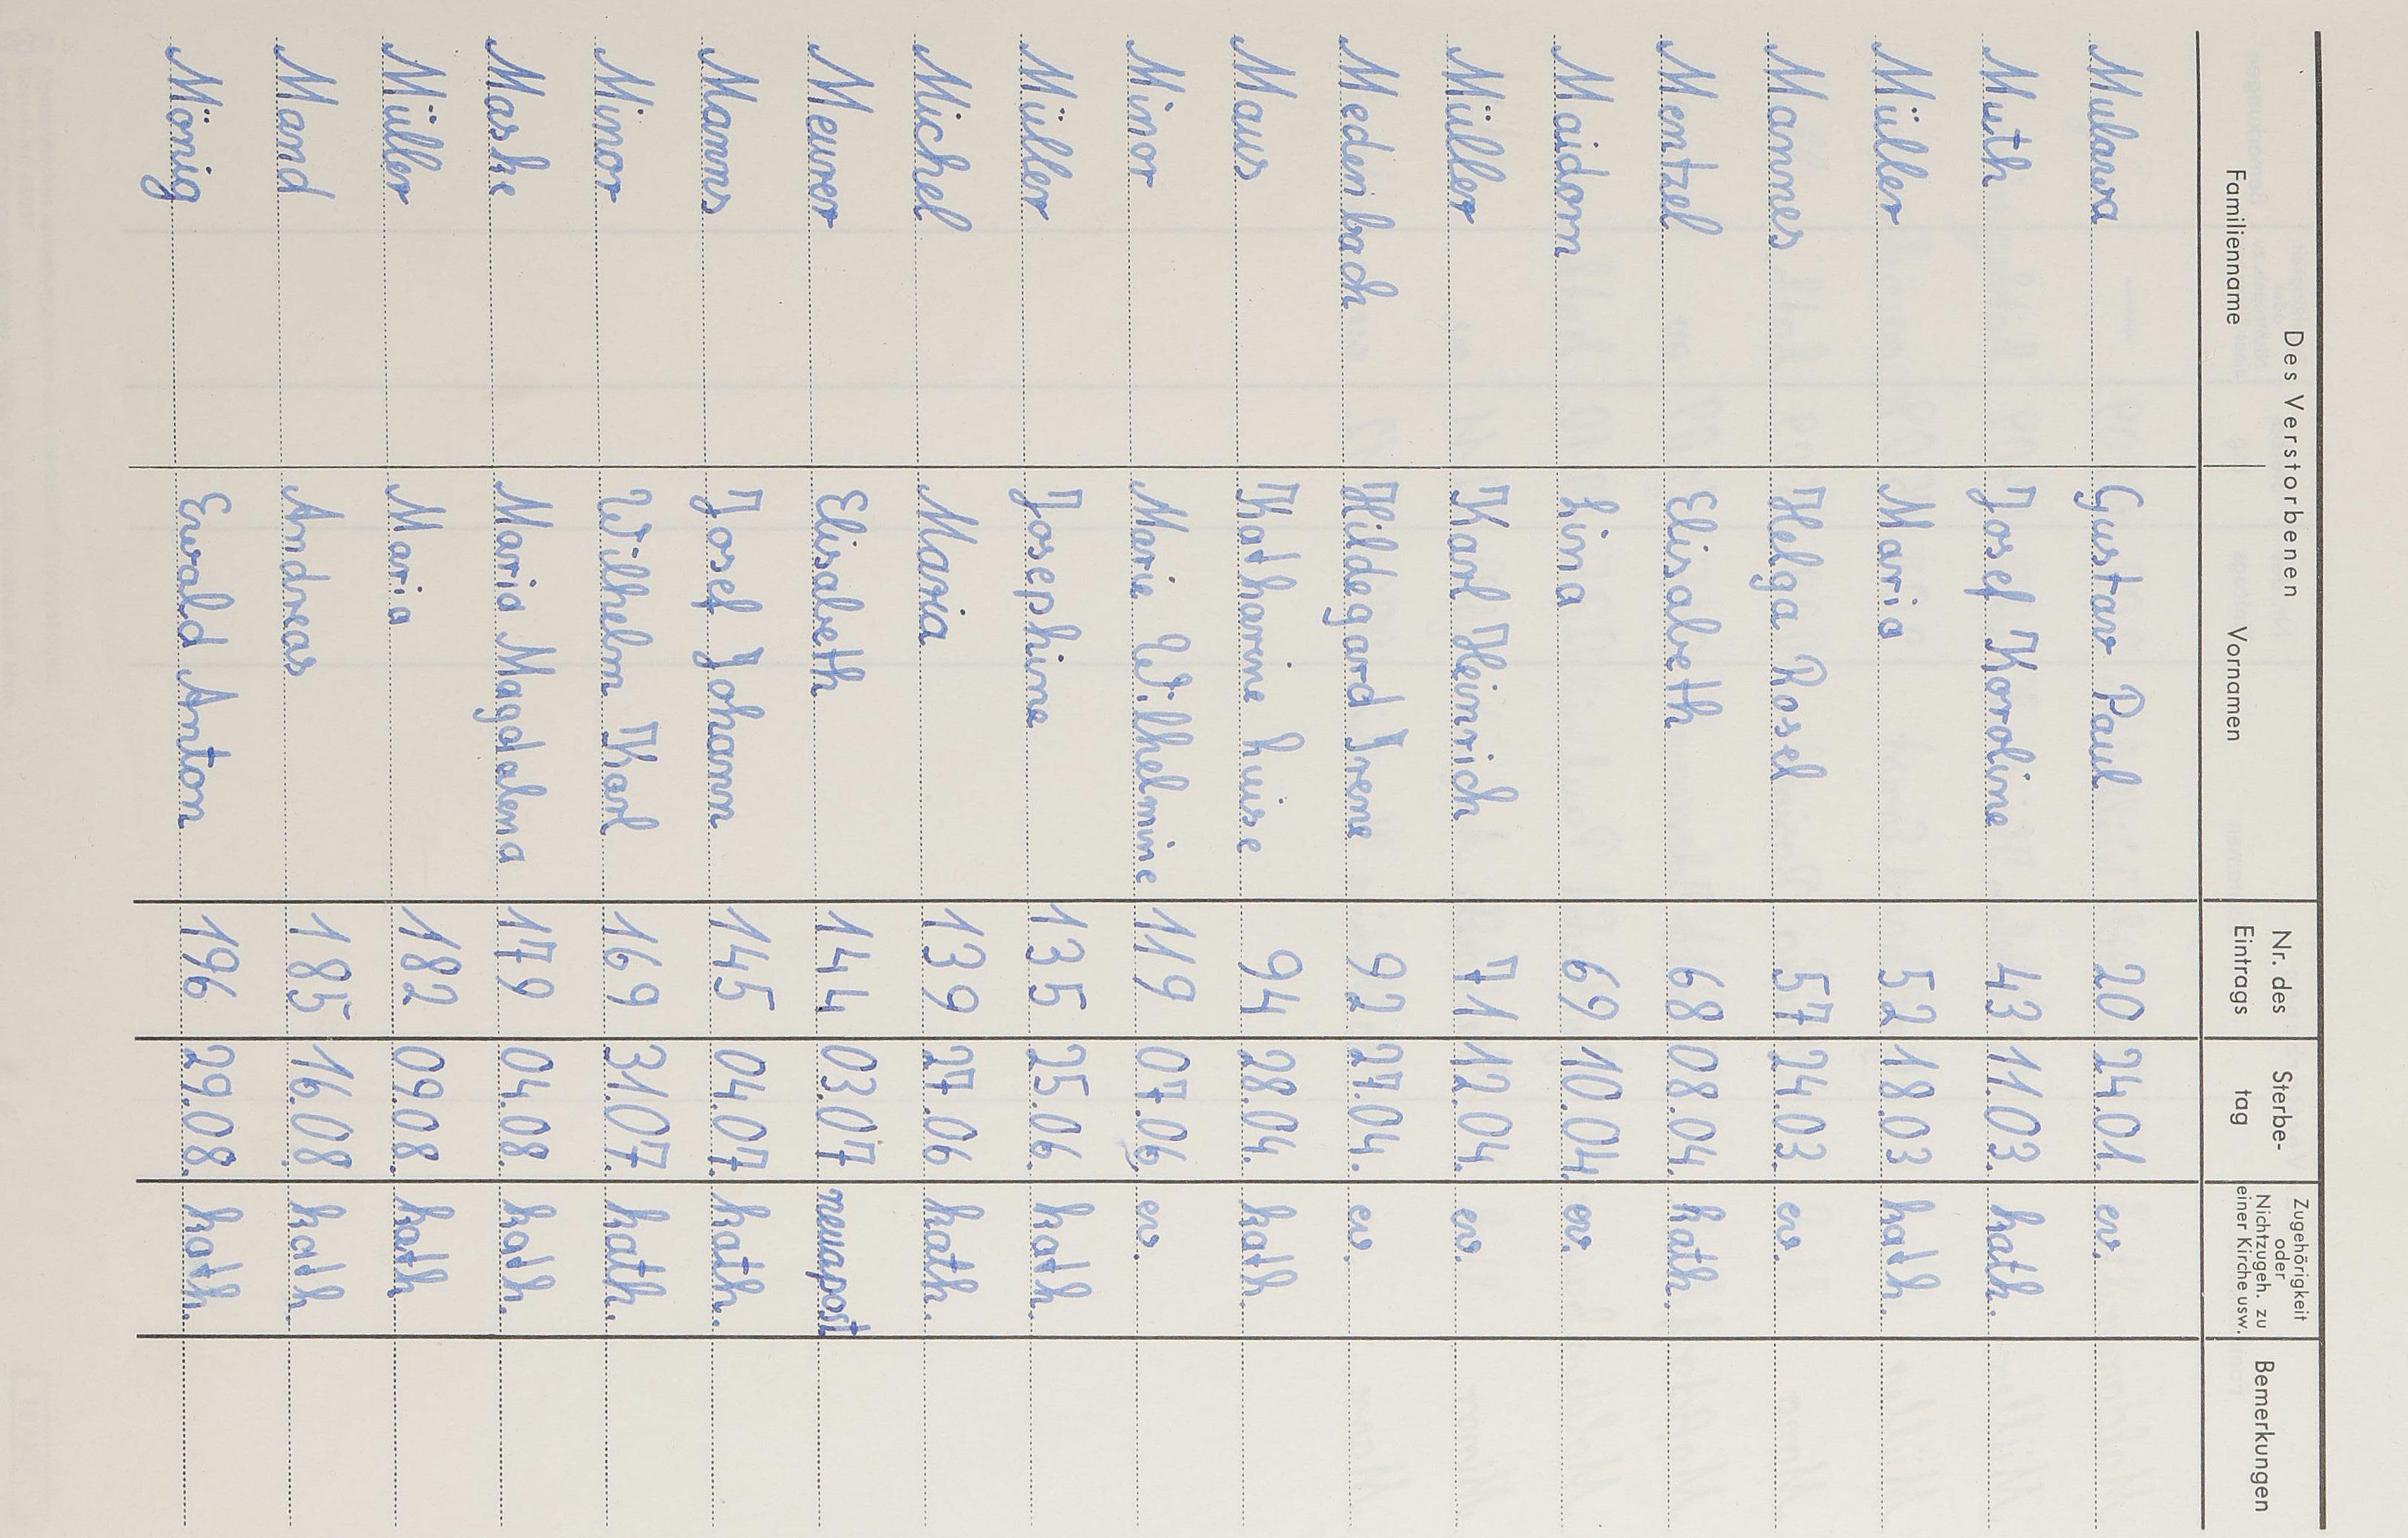 Des Verstorbenen
Familienname Vornamen Nr. des Eintrags Sterbe-tag Zugehörigkeit oder Nichtzugeh. zu einer Kirche usw. Bemerkungen
Mulawa Gustav Paul 20 24.01. ev.
Muth Josef Karoline 43 11.03. kath.
Müller Maria 52 18.03 kath.
Mannes Helga Rosel 57 24.03. ev.
Mentzel Elisabeth 68 08.04. kath.
Maidorn Lina 69 10.04. ev.
Müller Karl Heinrich 71 12.04. ev.
Medenbach Hildegard Irene 92 27.04. ev.
Maus Katharine Luise 94 28.04. kath.
Minor Marie Wilhelmine 119 07.06. ev.
Müller Josephine 135 25.06. kath.
Michel Maria 139 27.06 kath.
Meurer Elisabeth 144 03.07 neuapost
Manns Josef Johann 145 04.07. kath.
Minor Wilhelm Karl 169 31.07. kath.
Maske Maria Magdalena 179 04.08. kath.
Müller Maria 182 09.08. kath
Mand Andreas 185 16.08. kath.
Mönig Ewald Anton 196 29.08. kath.